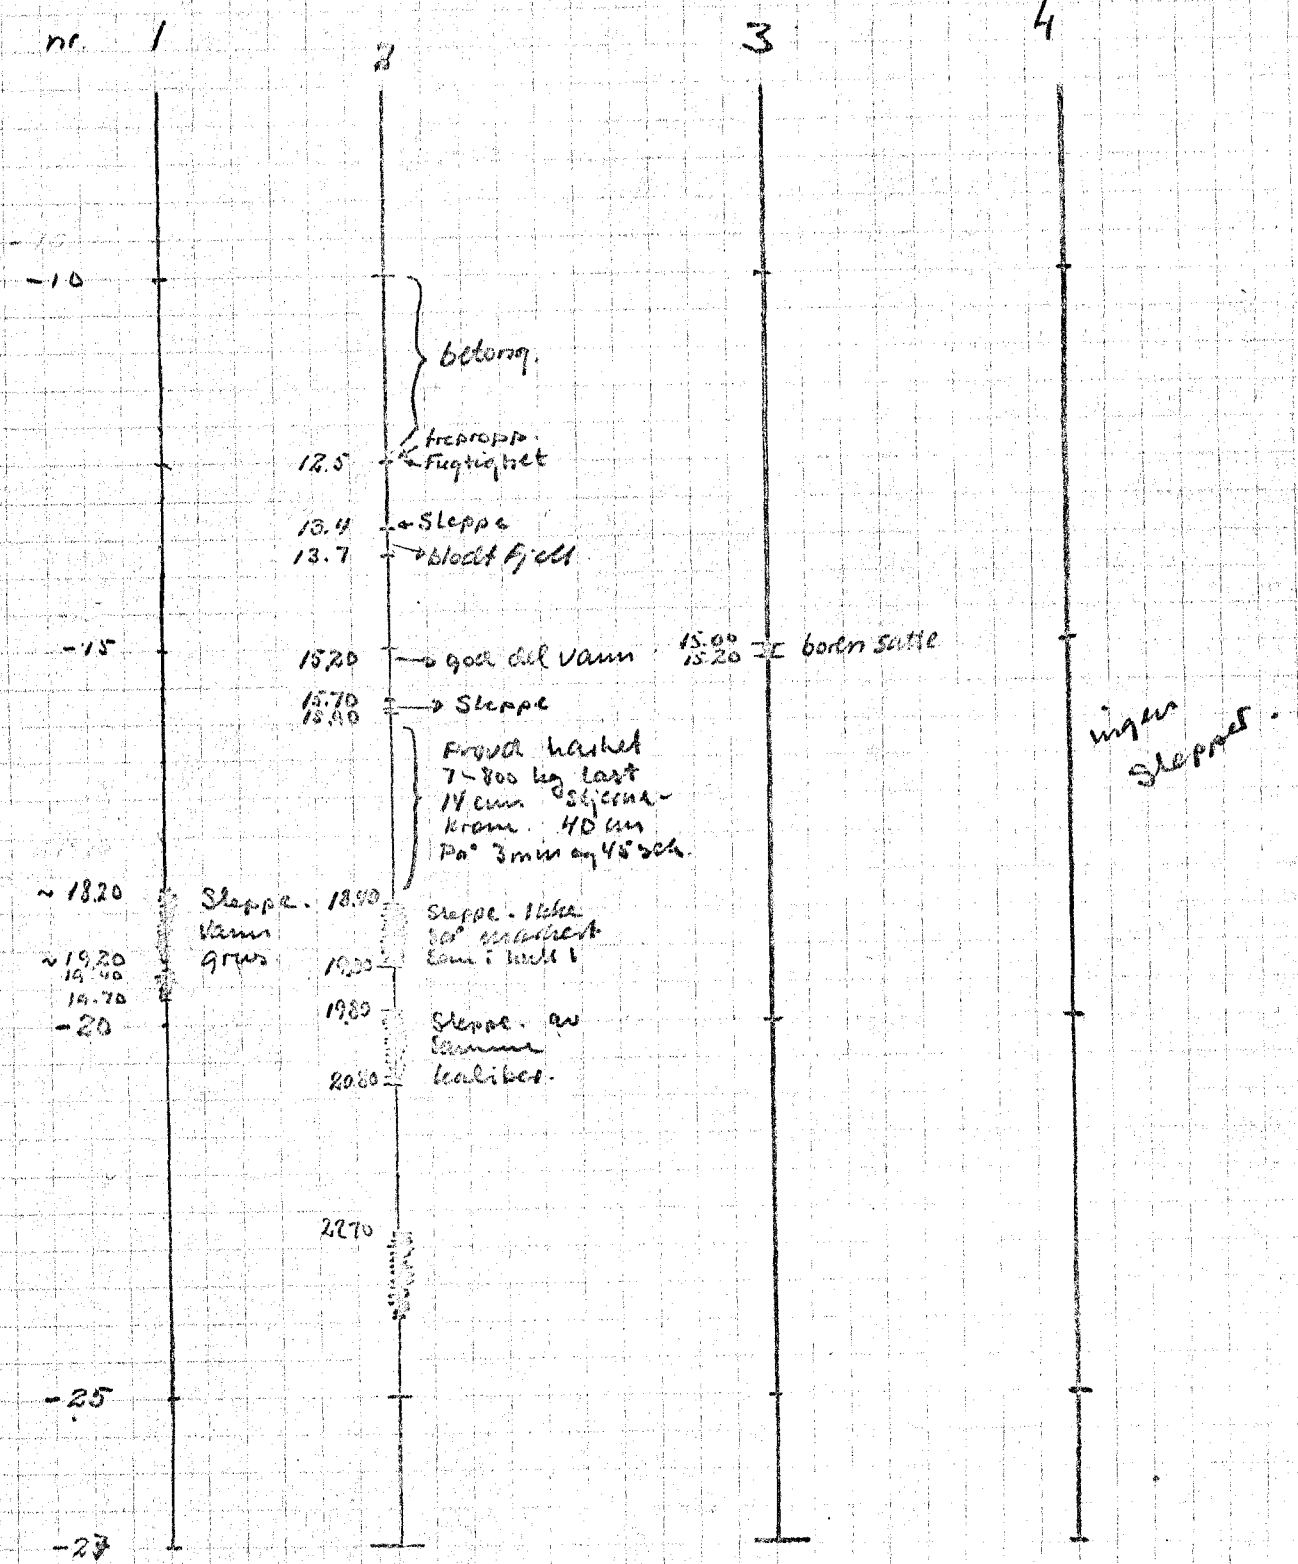 nr. 1
2
3
4
-10
-10
betong.
trepropp.
12.5
Fugtighet
13.4
Sleppe
13.7
blødt fjell
-15
15,20
god del vann
15.00
15.20
boren satte
15.70
Sleppe
ingen
slepper.
Prøvd hardhet
7-800 kg last
14 cm stjerne-
krone. 40 cm
På 3 min og 45 sek.
~ 18.20
Sleppe.
vann
grus
~ 19.20
19.40
19.70
-20
18.40
Sleppe. Ikke
så markert
som i hull 1
19.30
19.80
Sleppe. av
samme
kaliber.
20.80
22.70
-25
-27